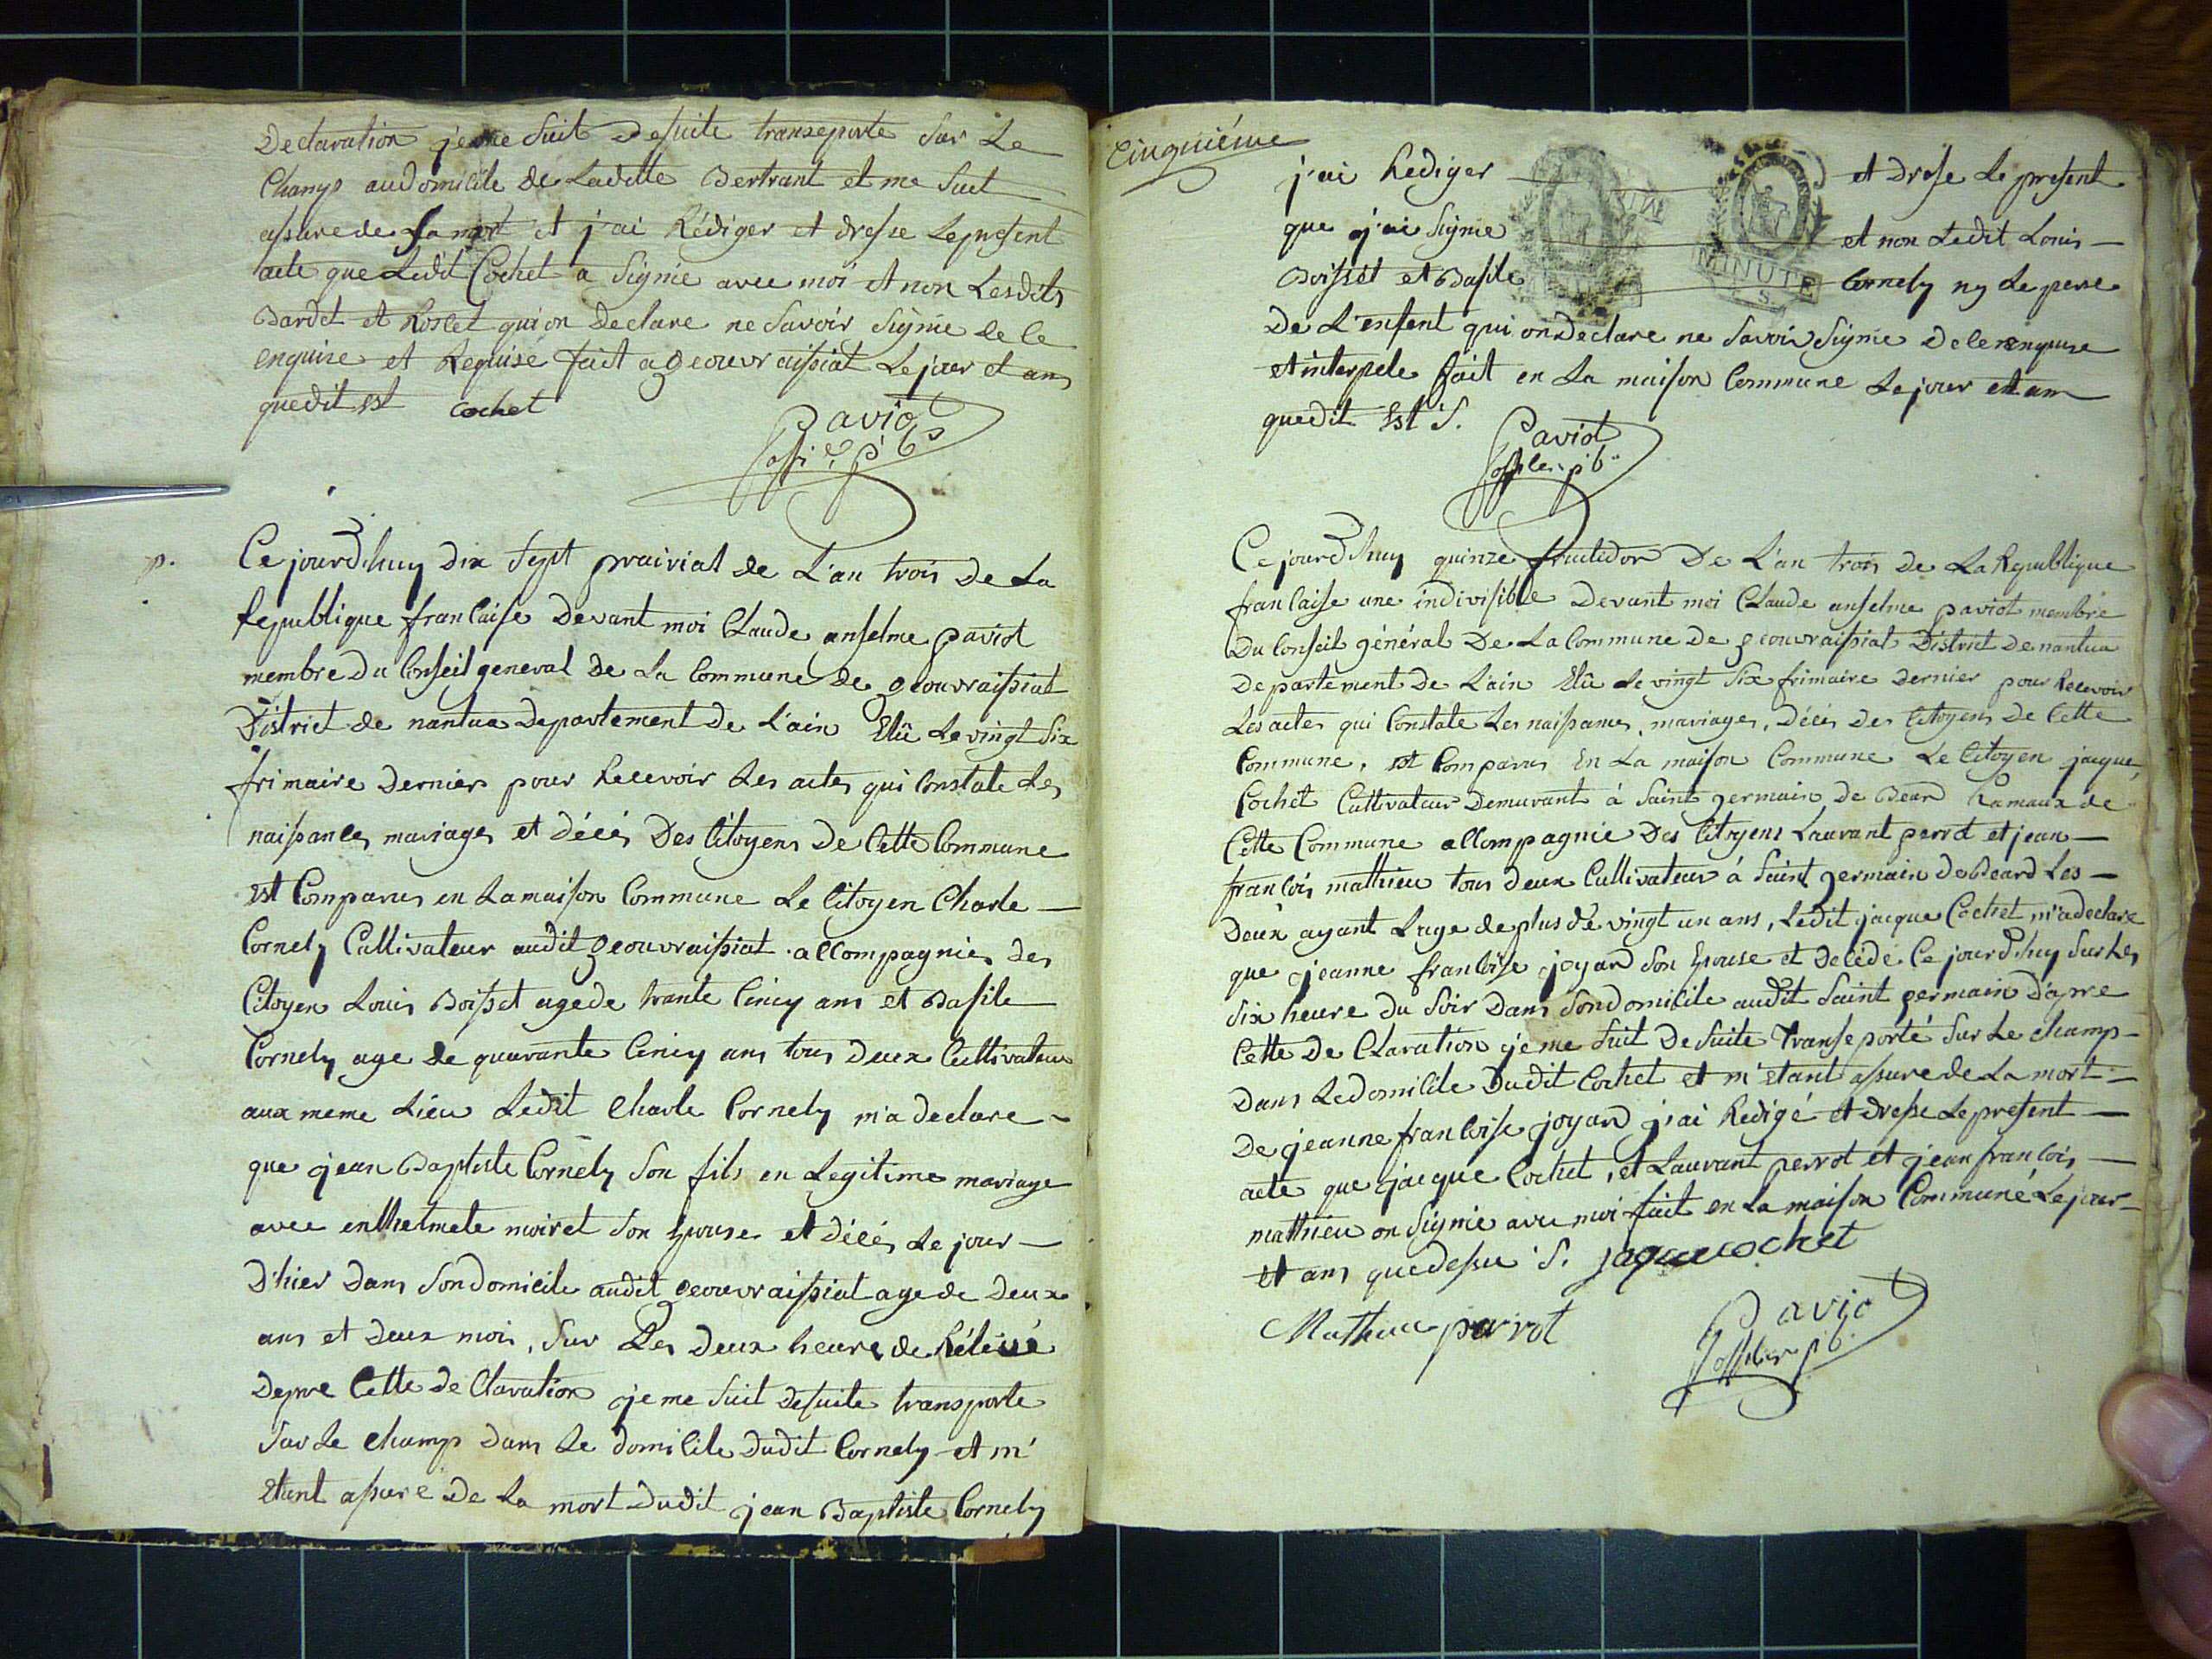 Declaration je me suit desuite transeporte sur Le
Champ audomicile de Laditte Bertrant et me suit
assurede La mort et j'ai Rédiger et dresse Lepresent
acte que Ledit Cochet a signie avec moi et non Lesdits
Bardet et Roslet qui on declare ne savoir signie de le
enquire et Requise fait a geouvraissiat Le jour et ans
quedit est cochet
Paviot
offi. p b
p.
Ce jourd'huy dix sept prairial de L'an trois de La
Republique francaise devant moi Claude anselme paviot
membre du Conseil general de La Commune de geouvraissiat
District de nantua Departement de L'ain Elû Le vingt six
frimaire dernier pour Recevoir Les actes qui Constate Les
naissances mariages et décés des Citoyens de Cette Commune
est Comparus en La maison Commune Le Citoyen Charle
Cornely Cultivateur audit geouvraissiat accompagnies des
Citoyen Louis Boisset agede trante Cincq ans et Basile
Cornely age de quarante Cincq ans tous deux Cultivateur
aux meme Lieu Ledit Charle Cornely m'a declare
que jean Baptiste Cornely son fils en Legitime mariage
avec enthelmete moiret son Epouse et décés Le jour
D'hier dans sondomicile audit geouvraissiat agede deux
ans et deux mois, sur Les deux heure de Rélévé
depre Cette de Claration je me suit desuite transporte
sur Le champ dans Le domicile dudit Cornely et m'
Etant assuré de La mort dudit jean Baptiste Cornely
Cinquiéme
j'ai Rediger et drese Le present
que j'ai signie et non Ledit Louis
Boisset et Basile Cornely ny Le pere
MINUTE
S
de L'enfent qui on declare ne savoir signie de le enquire
et interpele fait en La maison Commune Le jour et an
quedit Est S.
Paviot
offier p b
Ce jourd'huy quinze fructidor de L'an trois de La Republique
francaise une indivisible devant moi Claude anselme paviot membre
du Conseil général de La Commune de geouvraissiat District de nantua
departement de L'ain Elû Le vingt six frimaire dernier pour Recevoir
Les actes qui Constate Les naissances, mariages, décés des Citoyens de Cette
Commune, est Comparus En La maison Commune Le Citoyen jaques
Cochet Cultivateur demurant à Saint germain de Bear hamaux de
Cette Commune accompagnie des Citoyens Lauvant perrot et jean
francois mathieu tous deux Cultivateur à Saint germain de Beard Les
deux ayant L'age de plus de vingt un ans, Ledit jacque Cochet m'a declare
que jeanne francoise joyard son Epouse et decede Ce jourd'huy sur Les
six heure du soir dans sondomicile audit Saint germain d'apre
Cette de Claration je me suit de suite transeporté sur Le champ
dans Le domicile dudit Cochet et m'etant assure de La mort
de jeanne francoise joyard j'ai Redigé et dresse Le present
acte que jacque Cochet, et Lauvant perrot et jean francois
mathieu on signie avec moi fait en La maison Commune Le jour
et ans quedessu S. jaque cochet
Mathieu perrot
Paviot
offier p b